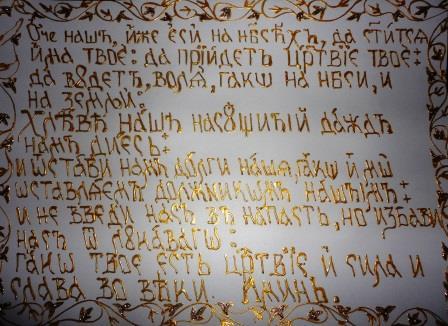 Ѻче нашъ и҆́же є҆сѝ на нб҃сѣхъ, да ст҃и́тсѧ
и҆́мѧ твоѐ: да прїи́детъ цр҃твїе твоѐ:
да бꙋ́детъ волѧ̀, ꙗкѡ на нб҃си, и
на землѝ.
Хлѣ́бъ на́шъ насꙋ́щный да́ждь
на́мъ дне́сь.
и ѡ҆ста́ви на́мъ до́лги на́ша, ꙗкѡ и҆ мы̀
ѡ҆ставлѧ́емъ должникѡ́мъ на́шимъ.
и не введѝ на́съ въ напасть, но изба́ви
насъ ѿ лꙋка́вагѡ:
ꙗкѡ твое є́сть цр҃твїе и҆ сила и
слава во вѣ́ки Аминь.